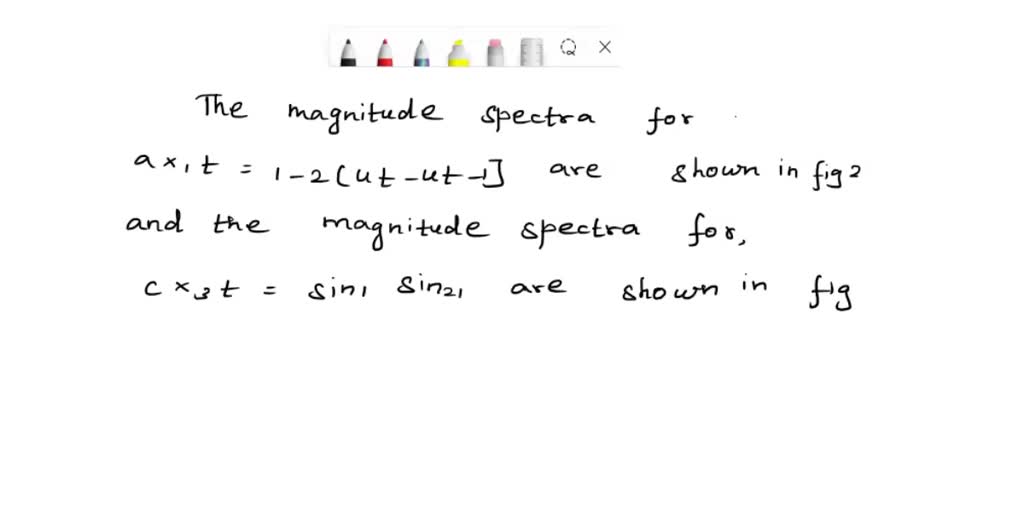 The magnitude spectra for
a x1 t = 1-2(ut-ut-1] are shown in fig 2
and the magnitude spectra for,
c x3 t = sin1 sin21 are shown in fig